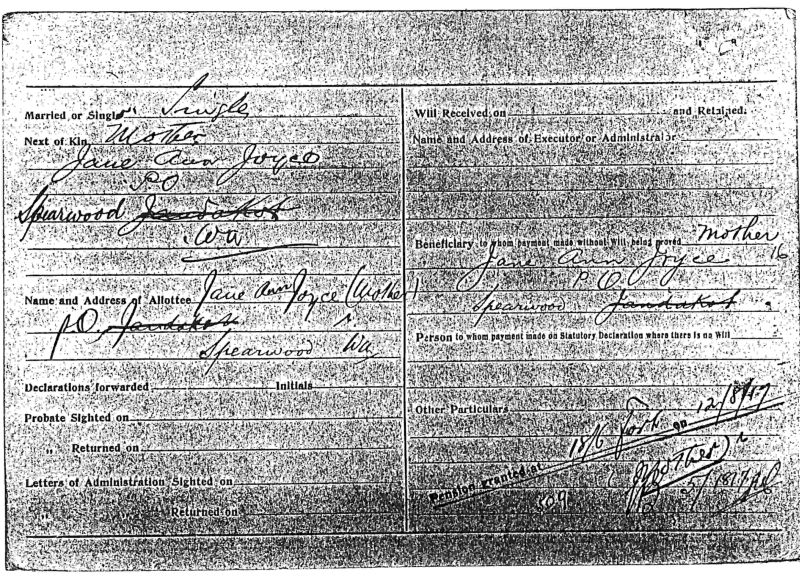 Married or Single Single
Next of Kin Mother
Jane Ann Joyce
P.O
Spearwood Jandakot
WA
Name and Address of Allottee Jane Ann Joyce (Mother)
P.O. Jandakot
Spearwood Wa
Declarations forwarded Initials
Probate Sighted on
„ Returned on
Letters of Administration Sighted on
„ Returned on
Will Received on and Retained.
Name and Address of Executor or Administrator
Beneficiary to whom payment made without Will being proved Mother
Jane Ann Joyce
P.O.
Spearwood Jandakot
Person to whom payment made on Statutory Declaration where there is no Will
Other Particulars
Pension granted at 18/6 on
(Mother)